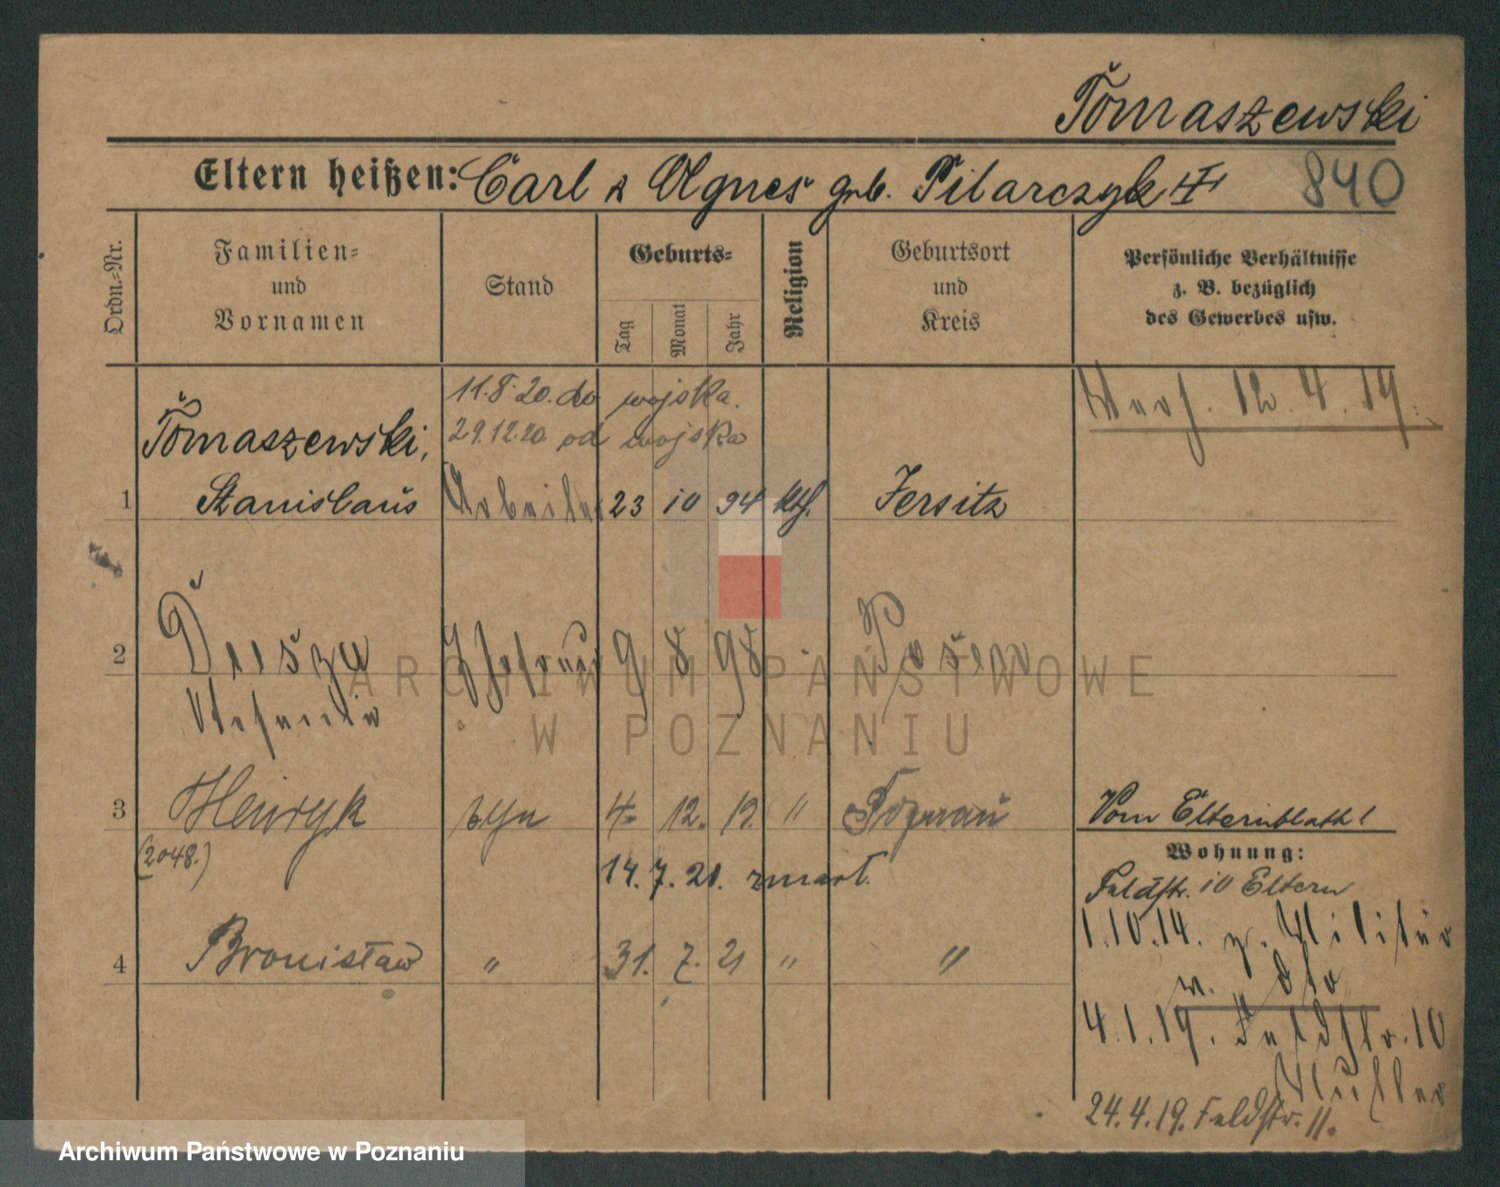 Tomaszewski
Eltern heißen: Carl & Agnes geb. Pilarczyk
840
Ordn.-Nr.
Familien-
und
Vornamen
Stand
Geburts-
Tag
Monat
Jahr
Religion
Geburtsort
und
Kreis
Persönliche Verhältnisse
z. B. bezüglich
des Gewerbes usw.
11.8.20. do wojska.
29.12.20 od wojska
Verh. 12.4.19.
Tomaszewski,
1 Stanislaus Arbeiter 23 10 94 kth. Jersitz
2 Ehefrau 9 8 98 Posen
Stefania
3 Henryk syn 4. 12. 19. " Poznań
(2048.)
14.7.21. zmarł.
4 Bronisław " 31. 7. 21 " "
Vom Elternblatt!
Wohnung:
Feldstr. 10 Eltern
1.10.14. z. Militär
4.1.19. Feldstr. 10
Mutter
24.4.19. Feldstr. 11.
ARCHIWUM PAŃSTWOWE
W POZNANIU
Archiwum Państwowe w Poznaniu